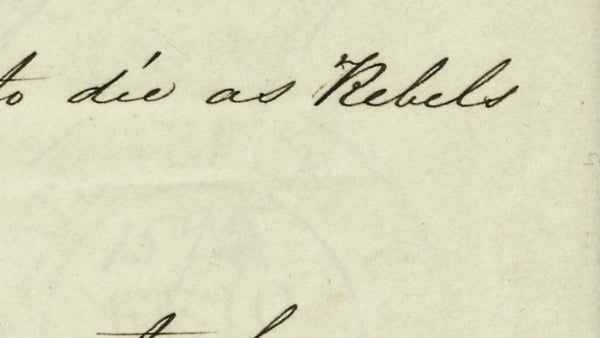 to die as Rebels